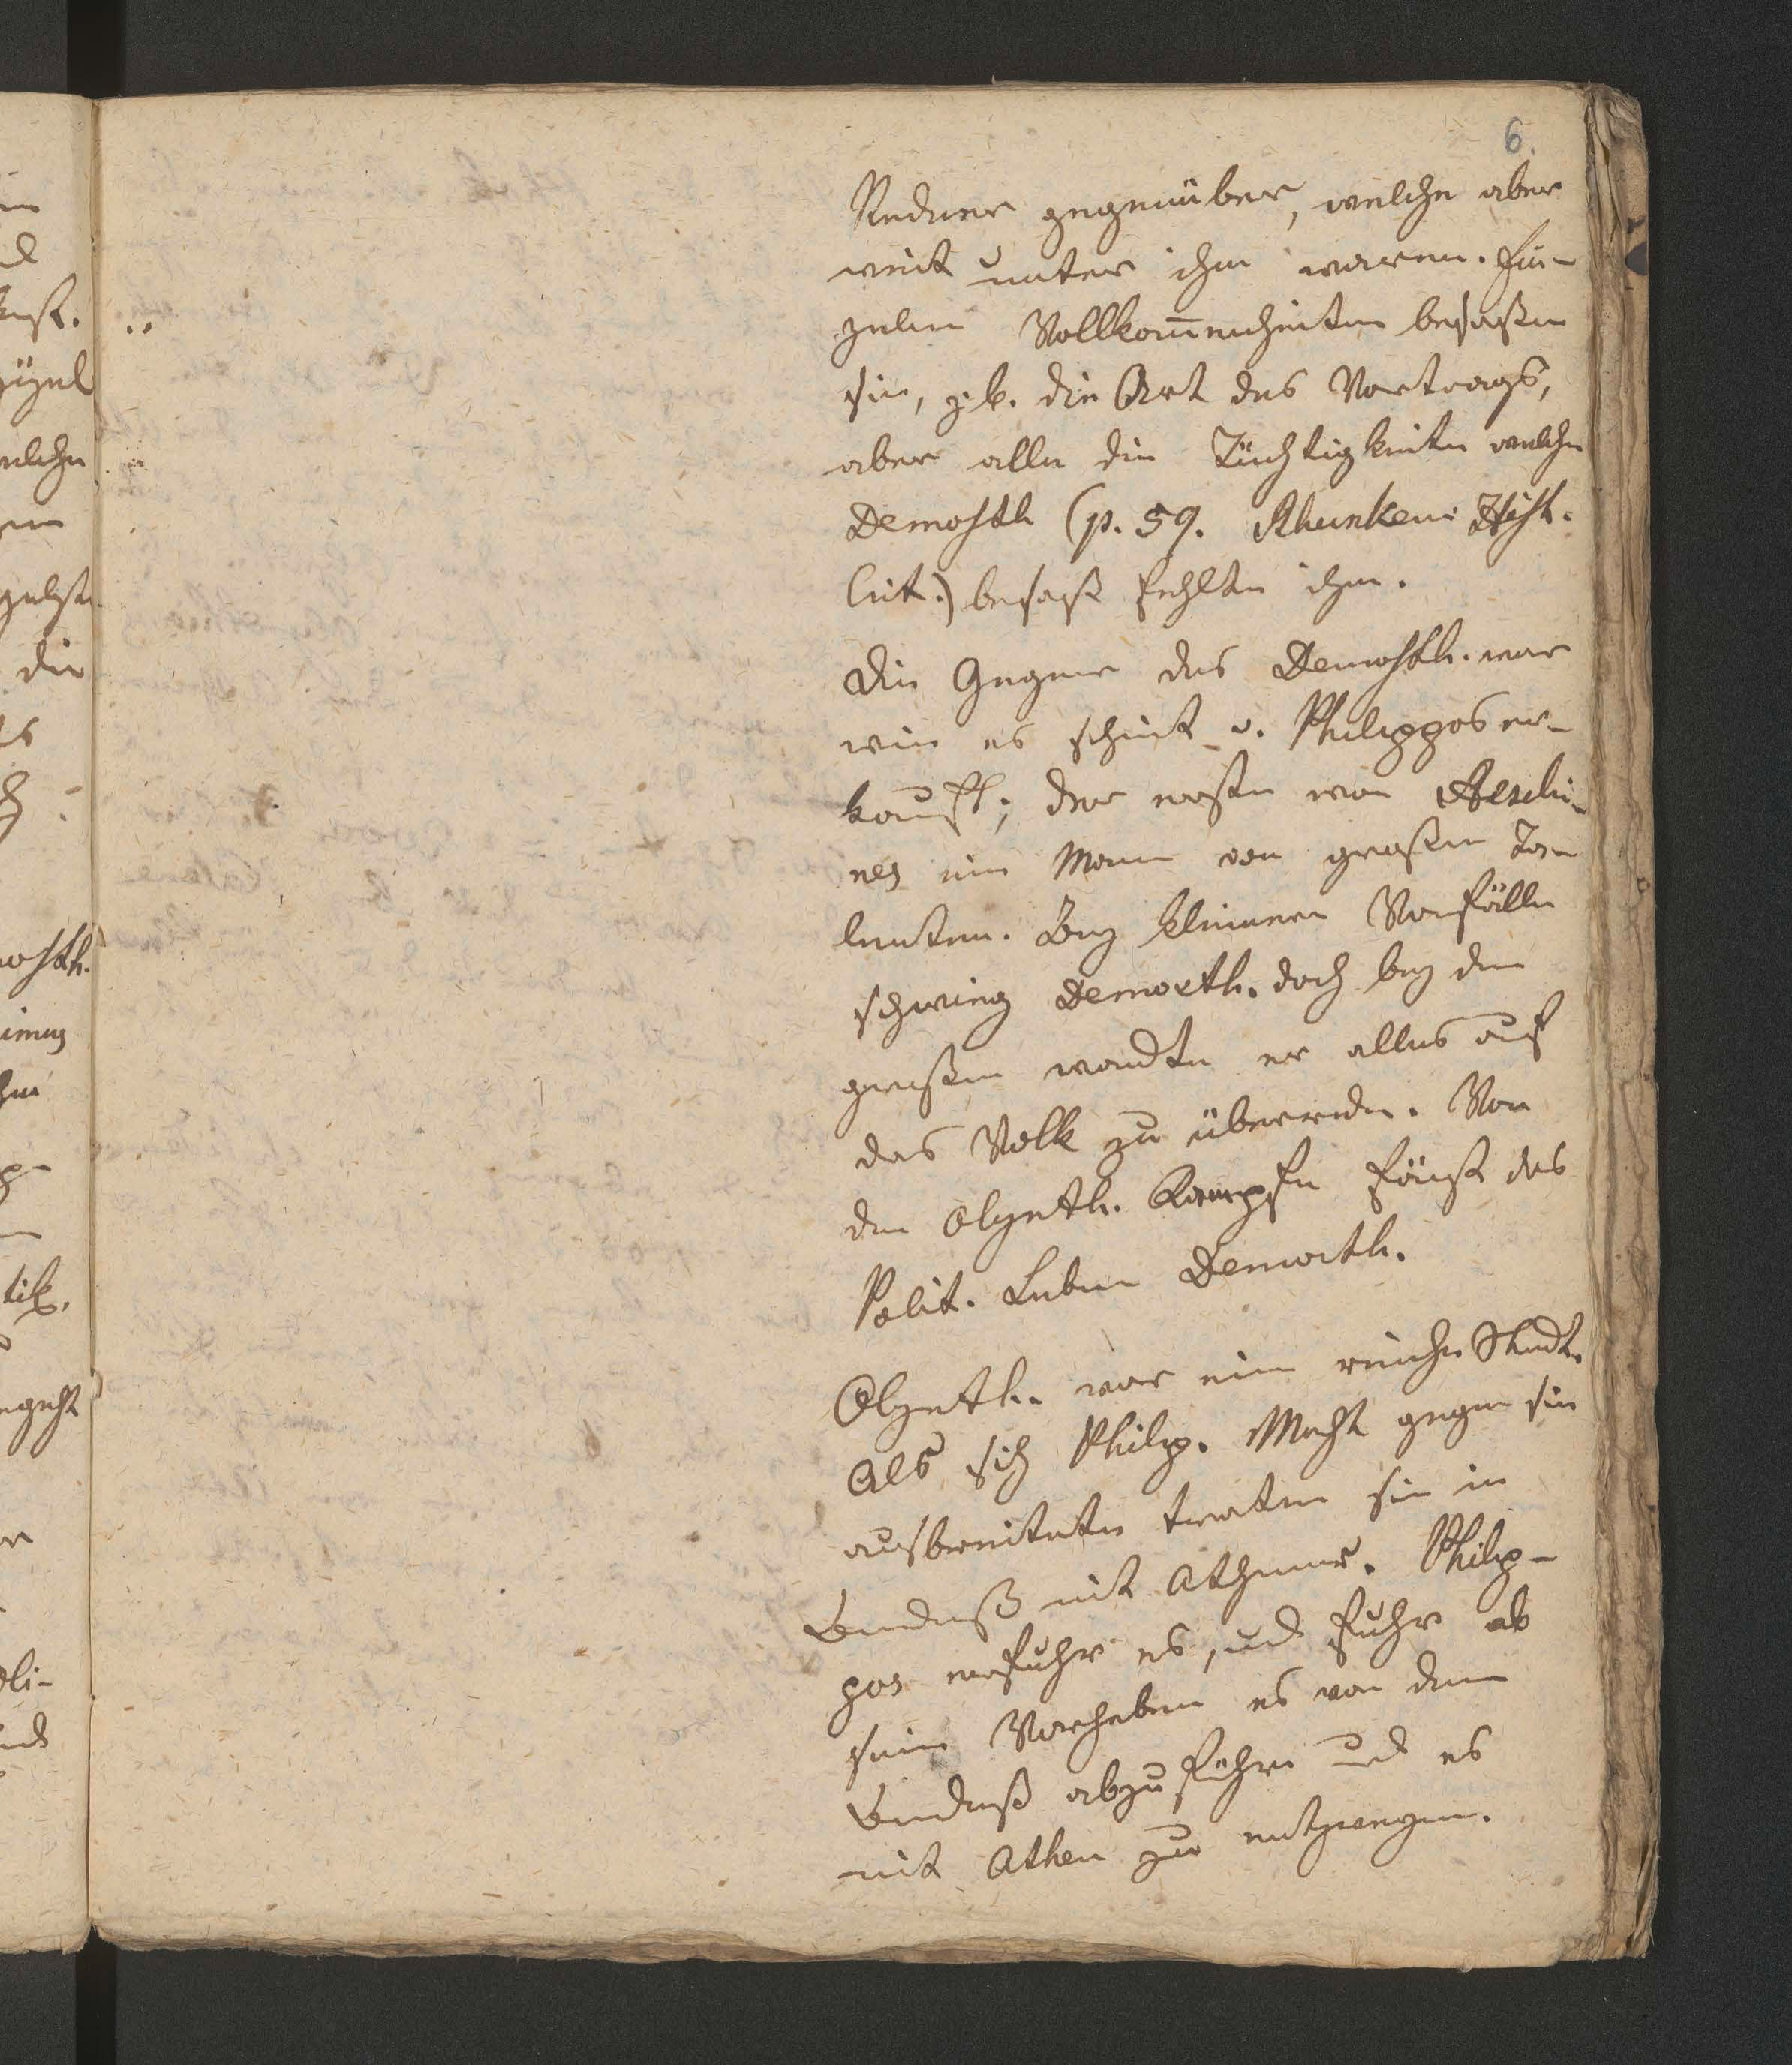 6.
Redner gegenüber, welche aber
weit unter ihm waren. Ein-
zelne Vollkom̅enheiten besaßen
sie, z. b. die Art des Vortrags,
aber alle die Tüchtigkeiten welche
Demosth (p. 59. Rhunken: Hist.
Crit.) besaß fehlten ihm.
Die Gegner des Demosth. war
wie es scheint v. Philippos er-
kauft; der erste war Aeschi-
nes ein Mann von großen Ta-
lenten. Bey kleineren Vorfällen
schwieg Demosth. doch bey den
großen wandte er alles auf
das Volk zu überreden. Von
den Olynth. Kampfe fängt das
Polit. Leben Demosth.
Olynth. war eine reiche Stadt.
Als sich Philip. Macht gegen sie
ausbreitete traten sie in
Bündniß mit Athener. Philip-
pos erfuhr es, und fuhr ab
sein Vorhaben es von dem
Bündniß abzuführen und es
mit Athen zu